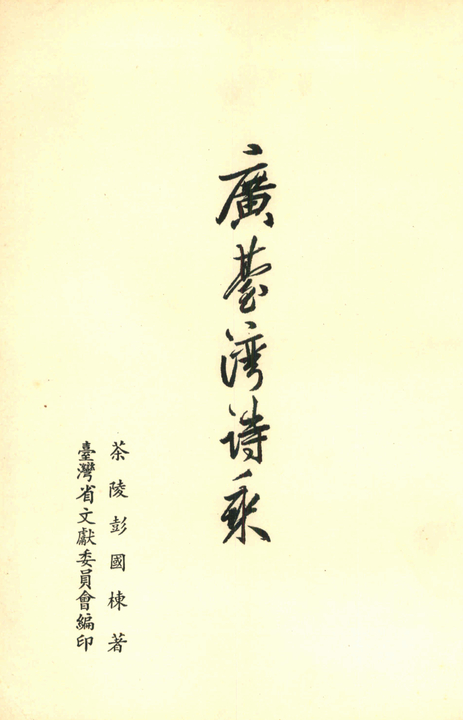 廣臺灣詩乘
茶陵彭國棟著
臺灣省文獻委員會編印